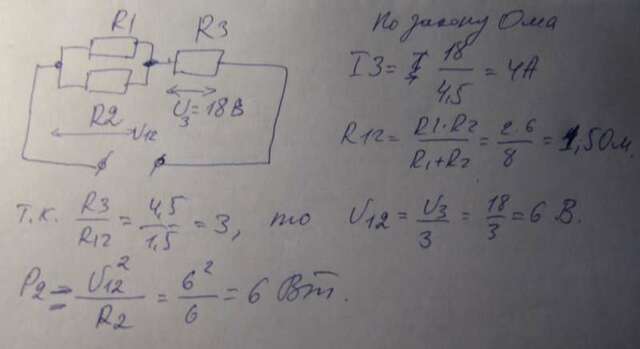 R1
R3
R2
U3=18В
U12
По закону Ома
I3= I 18/4,5 = 4А
R12= R1·R2/R1+R2 = 2·6/8 = 1,5Ом.
т.к. R3/R12 = 4,5/1,5 = 3, то U12 = U3/3 = 18/3 = 6 В.
P2 = U12²/R2 = 6²/6 = 6 Вт.